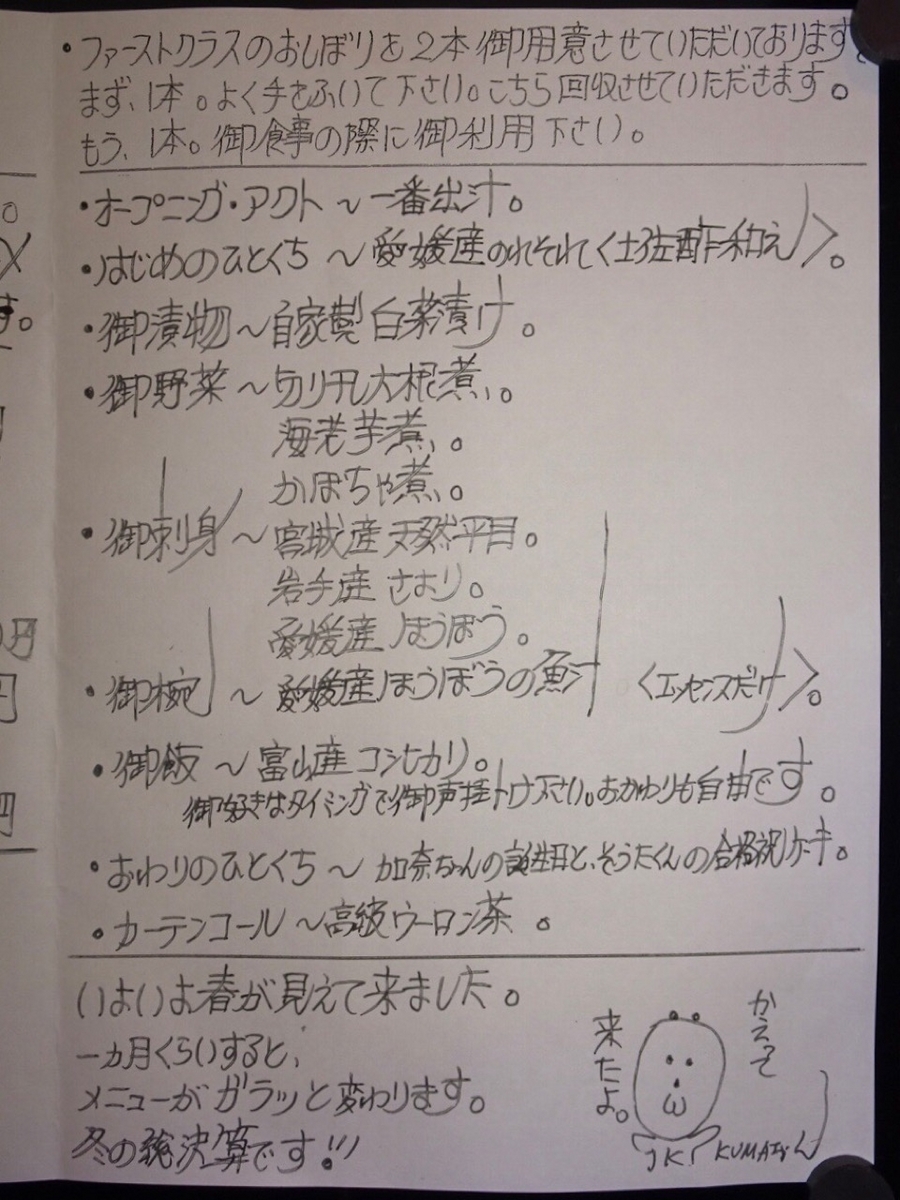 ・ファーストクラスのおしぼりを2本御用意させていただいております。
まず、1本。よく手をふいて下さい。こちら回収させていただきます。
もう、1本。御食事の際に御利用下さい。
・オープニング・アクト〜一番出汁。
・はじめのひとくち〜愛媛産のれそれ〈土佐酢和え〉。
・御漬物〜自家製白菜漬け。
・御野菜〜切り干し大根煮。
海老芋煮。
かぼちゃ煮。
・御刺身〜宮城産天然平目。
岩手産さより。
愛媛産ほうぼう。
・御椀〜愛媛産ほうぼうの魚汁〈エッセンスだけ〉。
・御飯〜富山産コシヒカリ。
御好きなタイミングで御声掛け下さい。おかわりも自由です。
・おわりのひとくち〜加奈ちゃんの誕生日と、そうたくんの合格祝いケーキ。
・カーテンコール〜高級ウーロン茶。
いよいよ春が見えて来ました。
一ヵ月くらいすると、
メニューがガラッと変わります。
冬の総決算です!!!
かえって
来たよ。